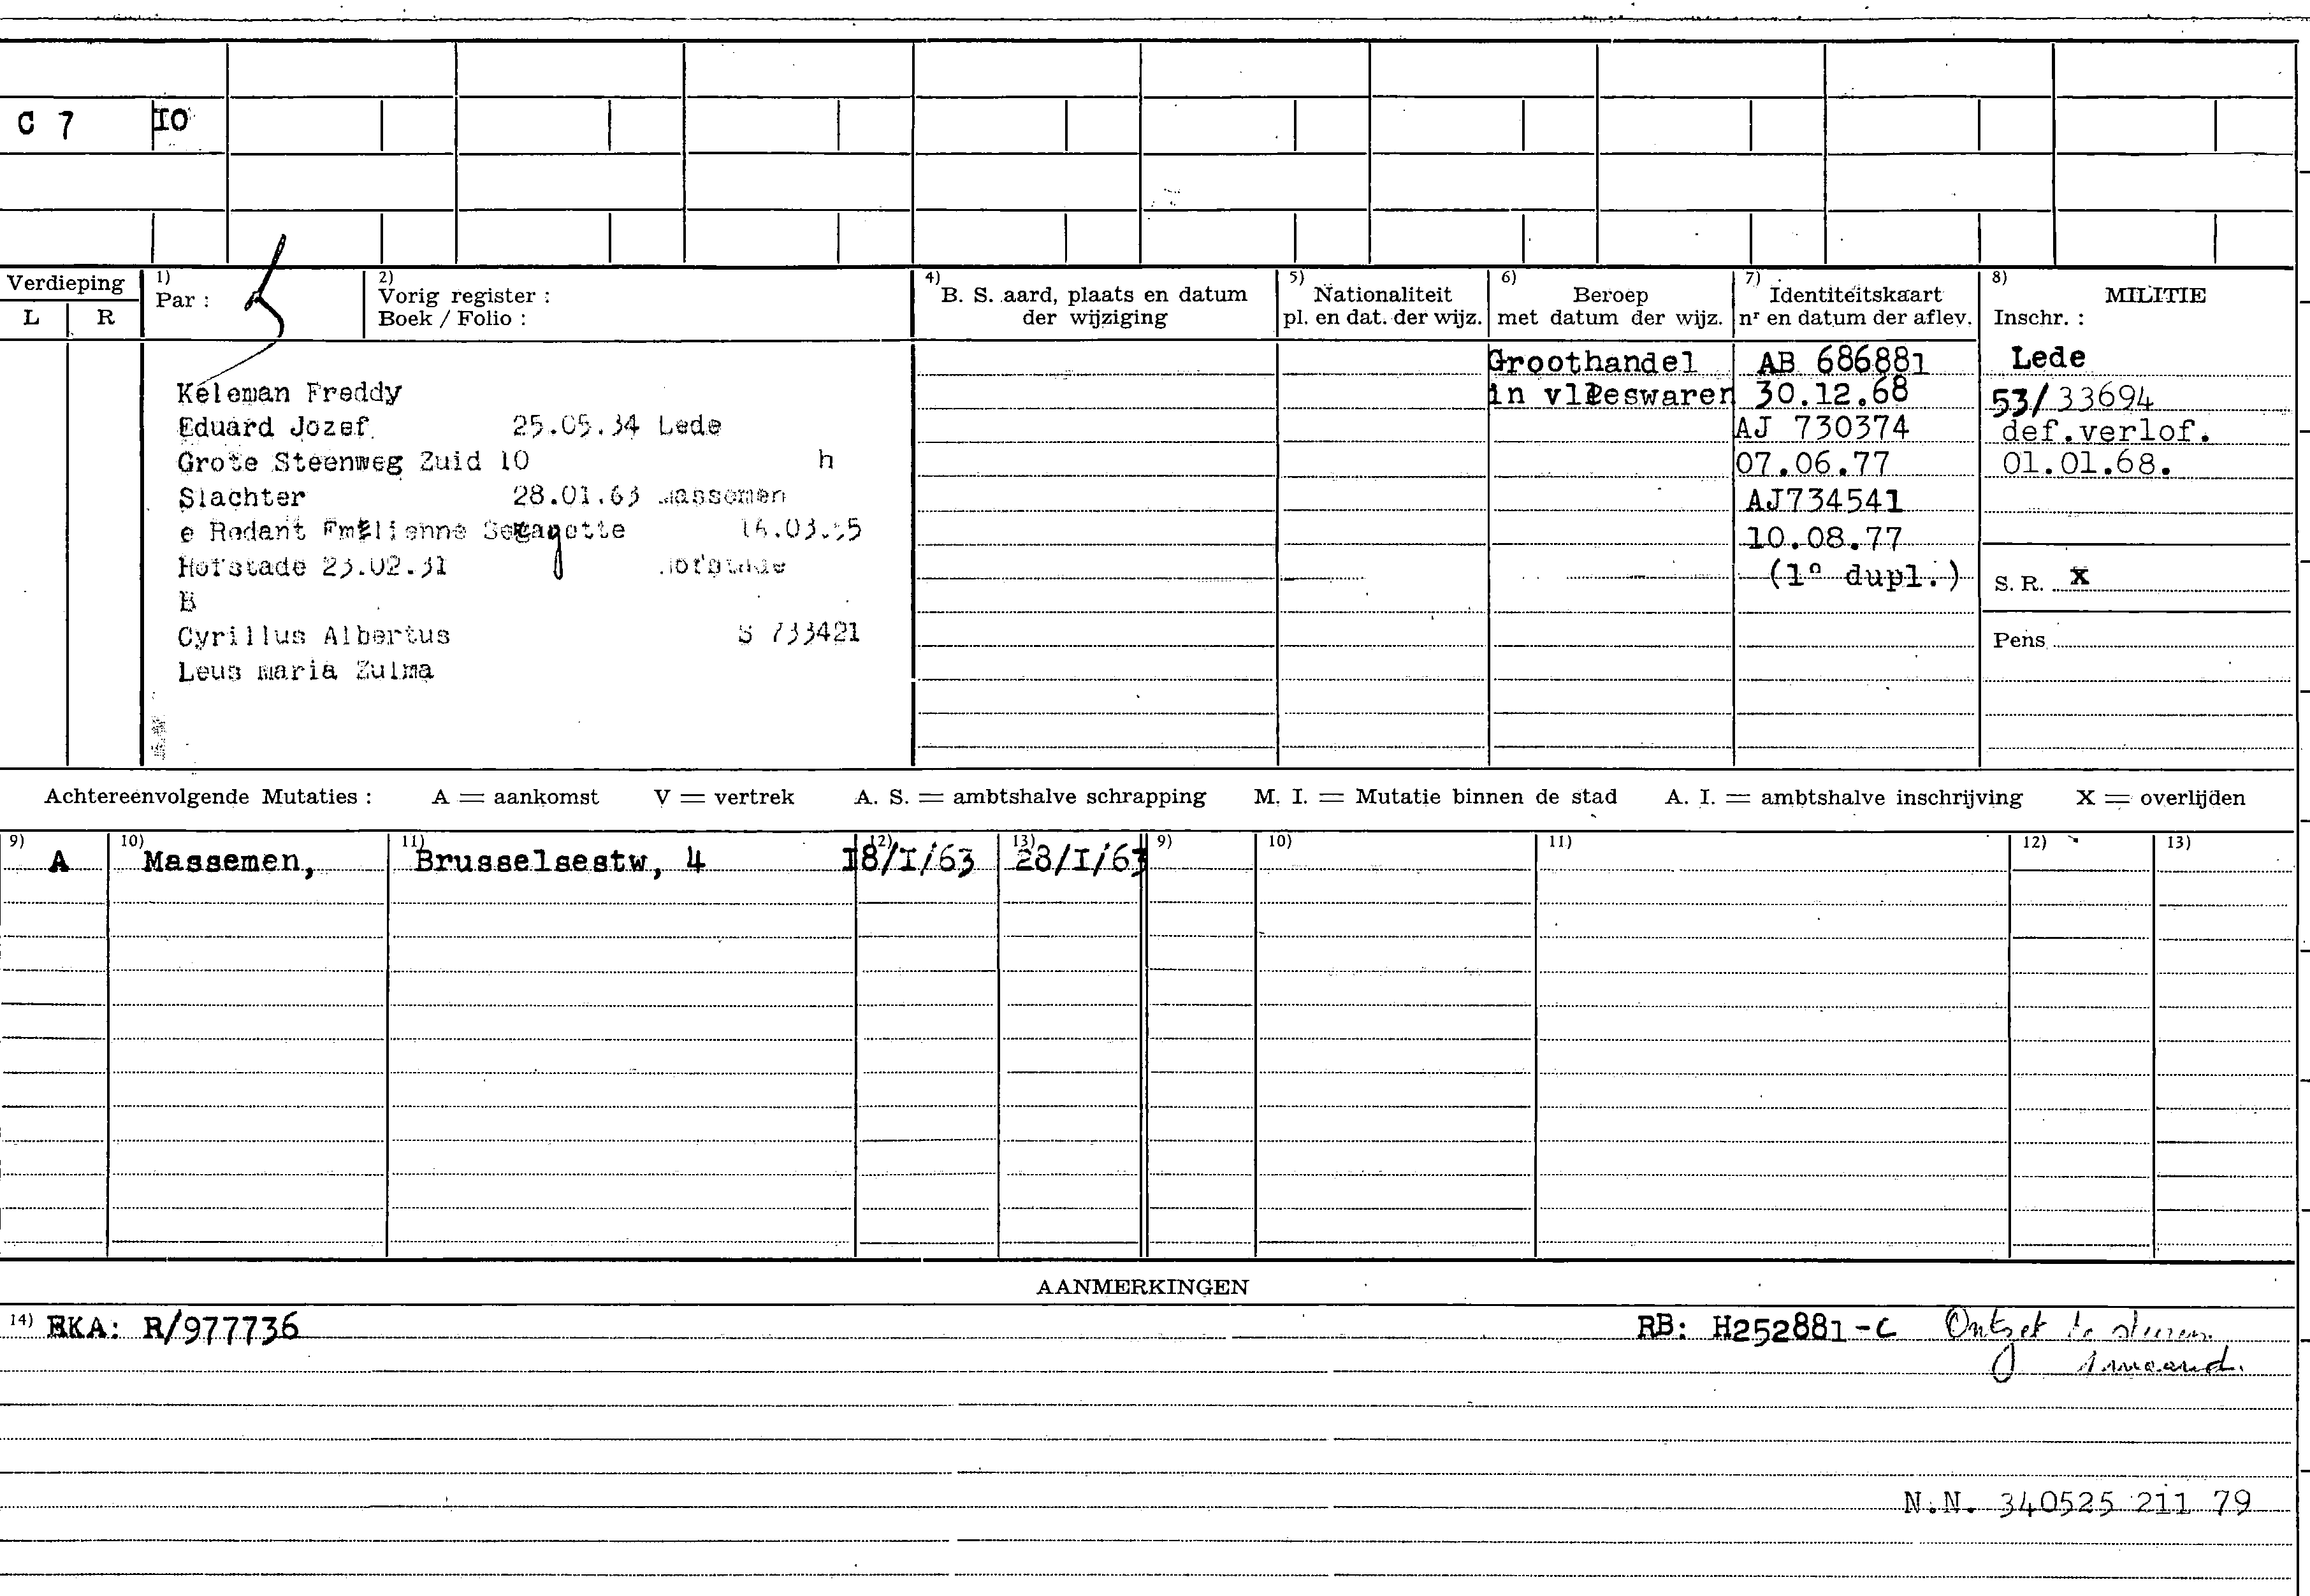 C 7 IO
Verdieping
L R
1)
Par :
2)
Vorig register :
Boek / Folio :
4)
B. S. aard, plaats en datum
der wijziging
5)
Nationaliteit
pl. en dat. der wijz.
6)
Beroep
met datum der wijz.
7)
Identiteitskaart
nr en datum der aflev.
8)
MILITIE
Inschr. :
Keleman Freddy
Eduard Jozef 25.05.34 Lede
Grote Steenweg Zuid 10 h
Slachter 28.01.63 Massemen
e Rodant Emilienne Seganette
Hofstade 23.02.31 Hofstade
B
Cyrillus Albertus S 733421
Leus maria Zulma
Groothandel
in vleeswaren
AB 686881
30.12.68
AJ 730374
07.06.77
AJ734541
10.08.77
(1° dupl.)
Lede
53/33694
def.verlof.
01.01.68.
S. R. X
Pens
Achtereenvolgende Mutaties : A = aankomst V = vertrek A. S. = ambtshalve schrapping M. I. = Mutatie binnen de stad A. I. = ambtshalve inschrijving X = overlijden
9) 10) 11) 12) 13) 9) 10) 11) 12) 13)
A Massemen, Brusselsestw, 4 I8/I/63 28/I/63
AANMERKINGEN
14) EKA: R/977736 RB: H252881-C Ontzet
N.N. 340525 211 79